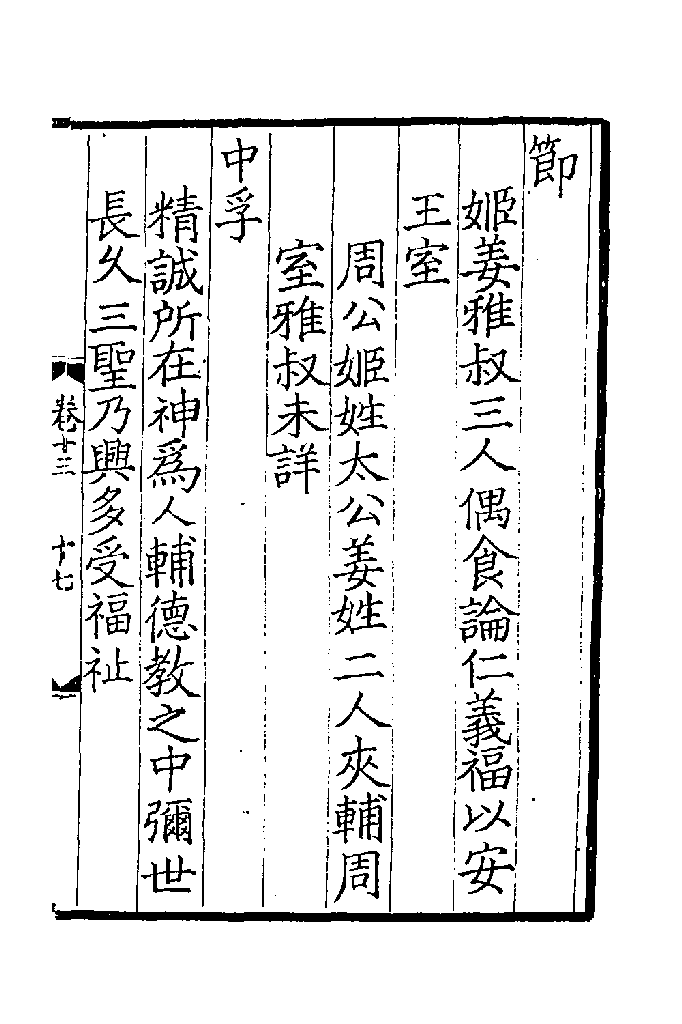 節
姬姜雅叔三人偶食論仁義福以安
王室
周公姬姓太公姜姓二人夾輔周
室雅叔未詳
中孚
精誠所在神爲人輔德教之中彌世
長久三聖乃興多受福祉
卷十三 十七